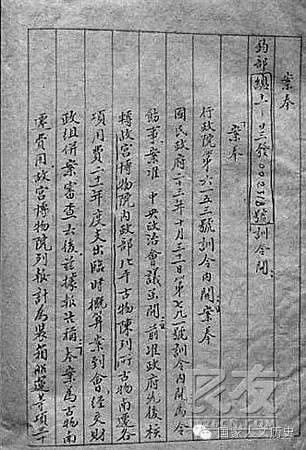 案奉
鈞部總字第發號訓令開
案奉
行政院第六一五三號訓令內開案奉
國民政府年十月三十一日第七九一號訓令內開為令
飭事案准 中央政治會議函開前准政府先後核
轉故宮博物院內政部北平古物陳列所古物南遷各
項用費二十二年度支出臨時概算案到會經交財
政組併案審查去後茲據報告稱本案為古物南
遷費用故宮博物院列報計為裝箱運等項
国家人文历史